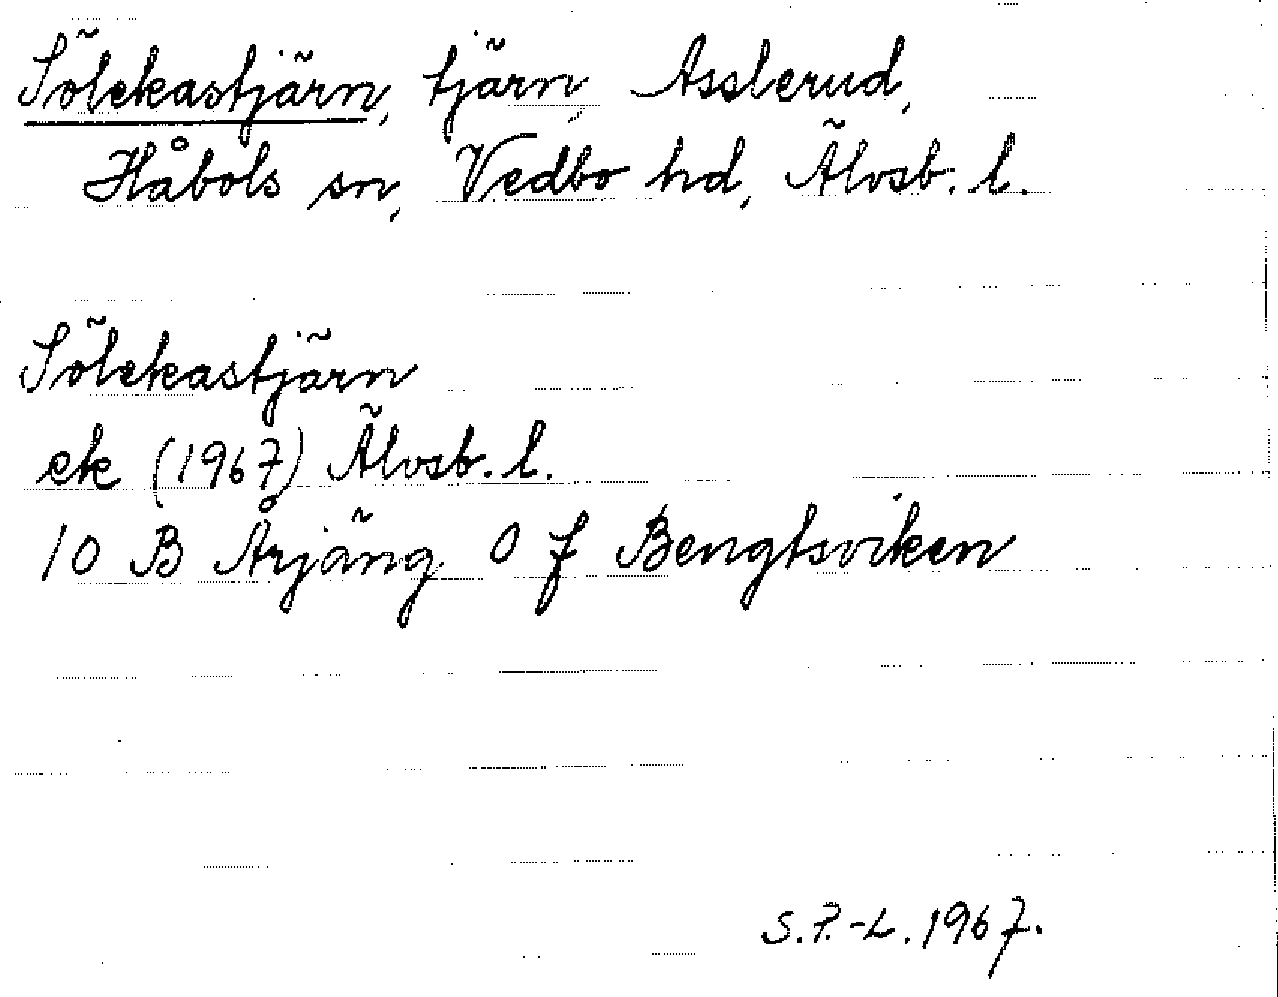 Sölekastjärn, tjärn, Asslerud,
Håbols sn, Vedbo hd, Älvsb. l.
Sölekastjärn
ek (1967) Älvsb. l.
10 B Årjäng 0 f Bengtsviken
S.P.-L. 1967.